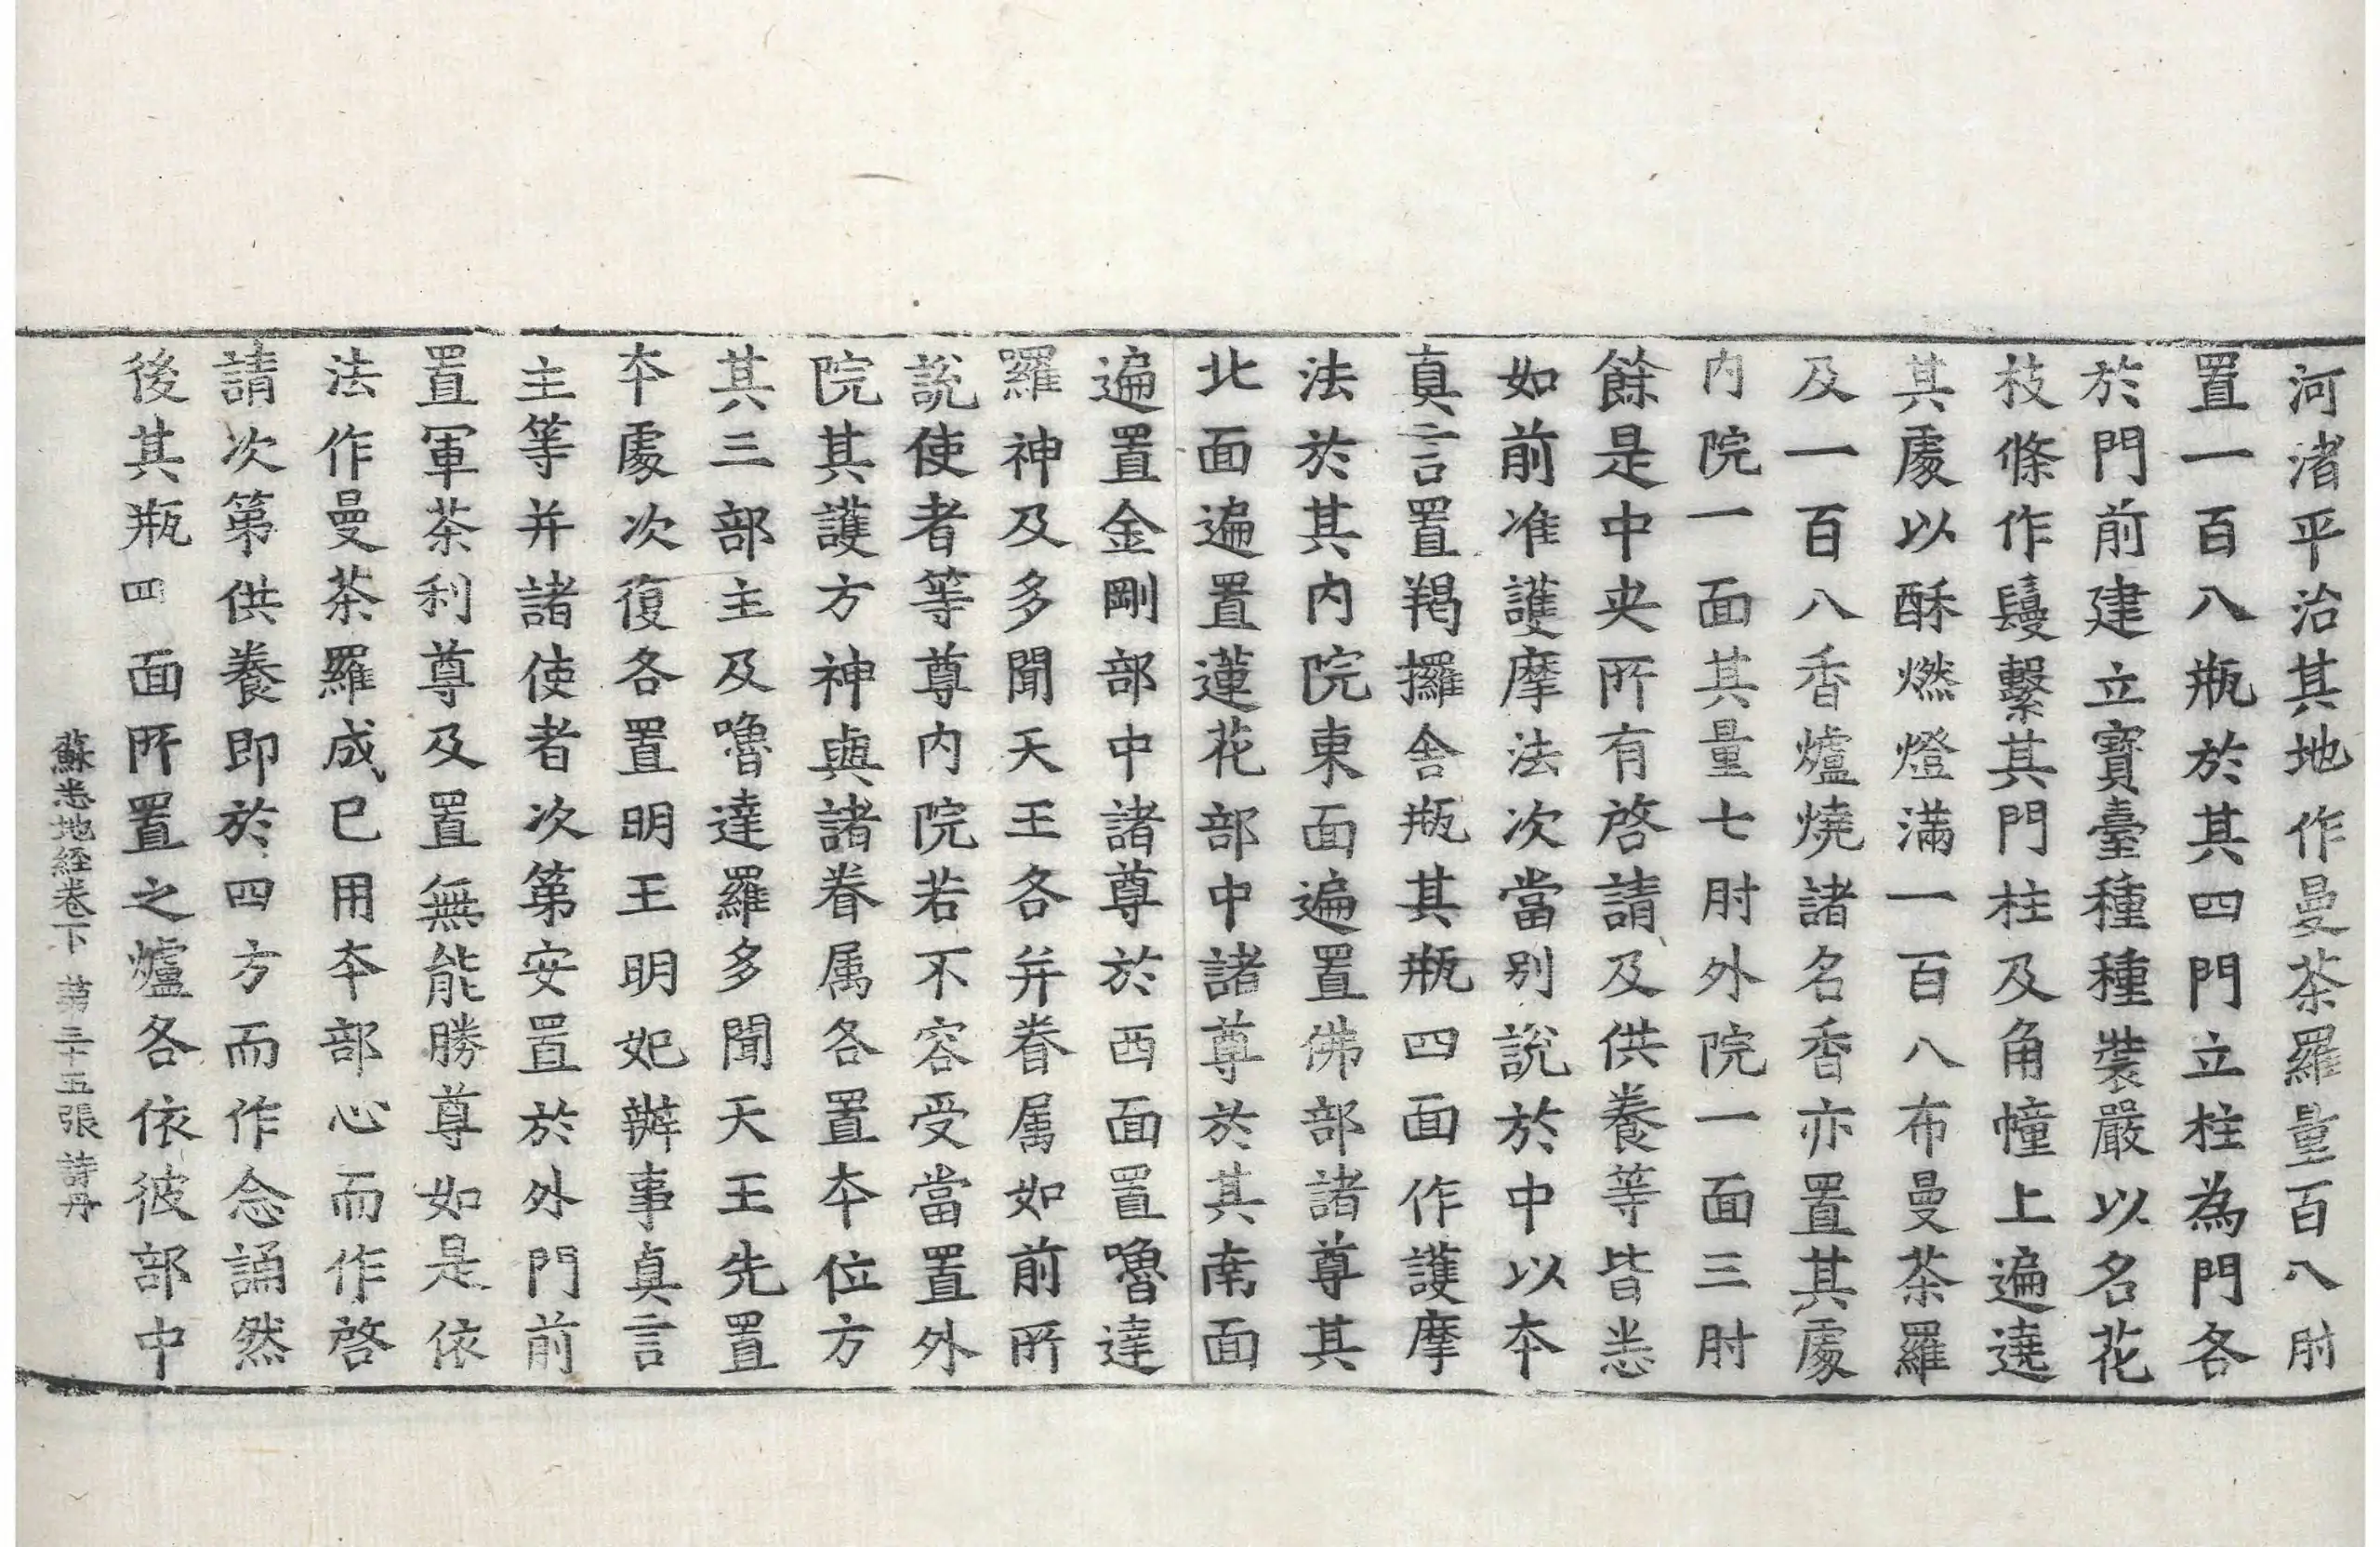 河渚平治其地作曼茶羅量百八肘
置一百八瓶於其四門立柱為門各
於門前建立寶臺種種裝嚴以名花
枝條作鬘繫其門柱及角幢上遍遶
其處以酥燃燈滿一百八布曼茶羅
及一百八香爐燒諸名香亦置其處
内院一面其量七肘外院一面三肘
餘是中央所有啓請及供養等皆悉
如前准護摩法次當别說於中以本
真言置羯攞舍瓶其瓶四面作護摩
法於其内院東面遍置佛部諸尊其
北面遍置蓮花部中諸尊於其南面
遍置金剛部中諸尊於西面置嚕達
羅神及多聞天王各并眷属如前所
說使者等尊内院若不容受當置外
院其護方神與諸眷属各置本位方
其三部主及嚕達羅多聞天王先置
本處次復各置明王明妃辦事真言
主等并諸使者次第安置於外門前
置軍茶利尊及置無能勝尊如是依
法作曼茶羅成已用本部心而作啓
請次第供養即於四方而作念誦然
後其瓶四面所置之爐各依彼部中
蘇悉地經卷下 第三十五張 詩丹